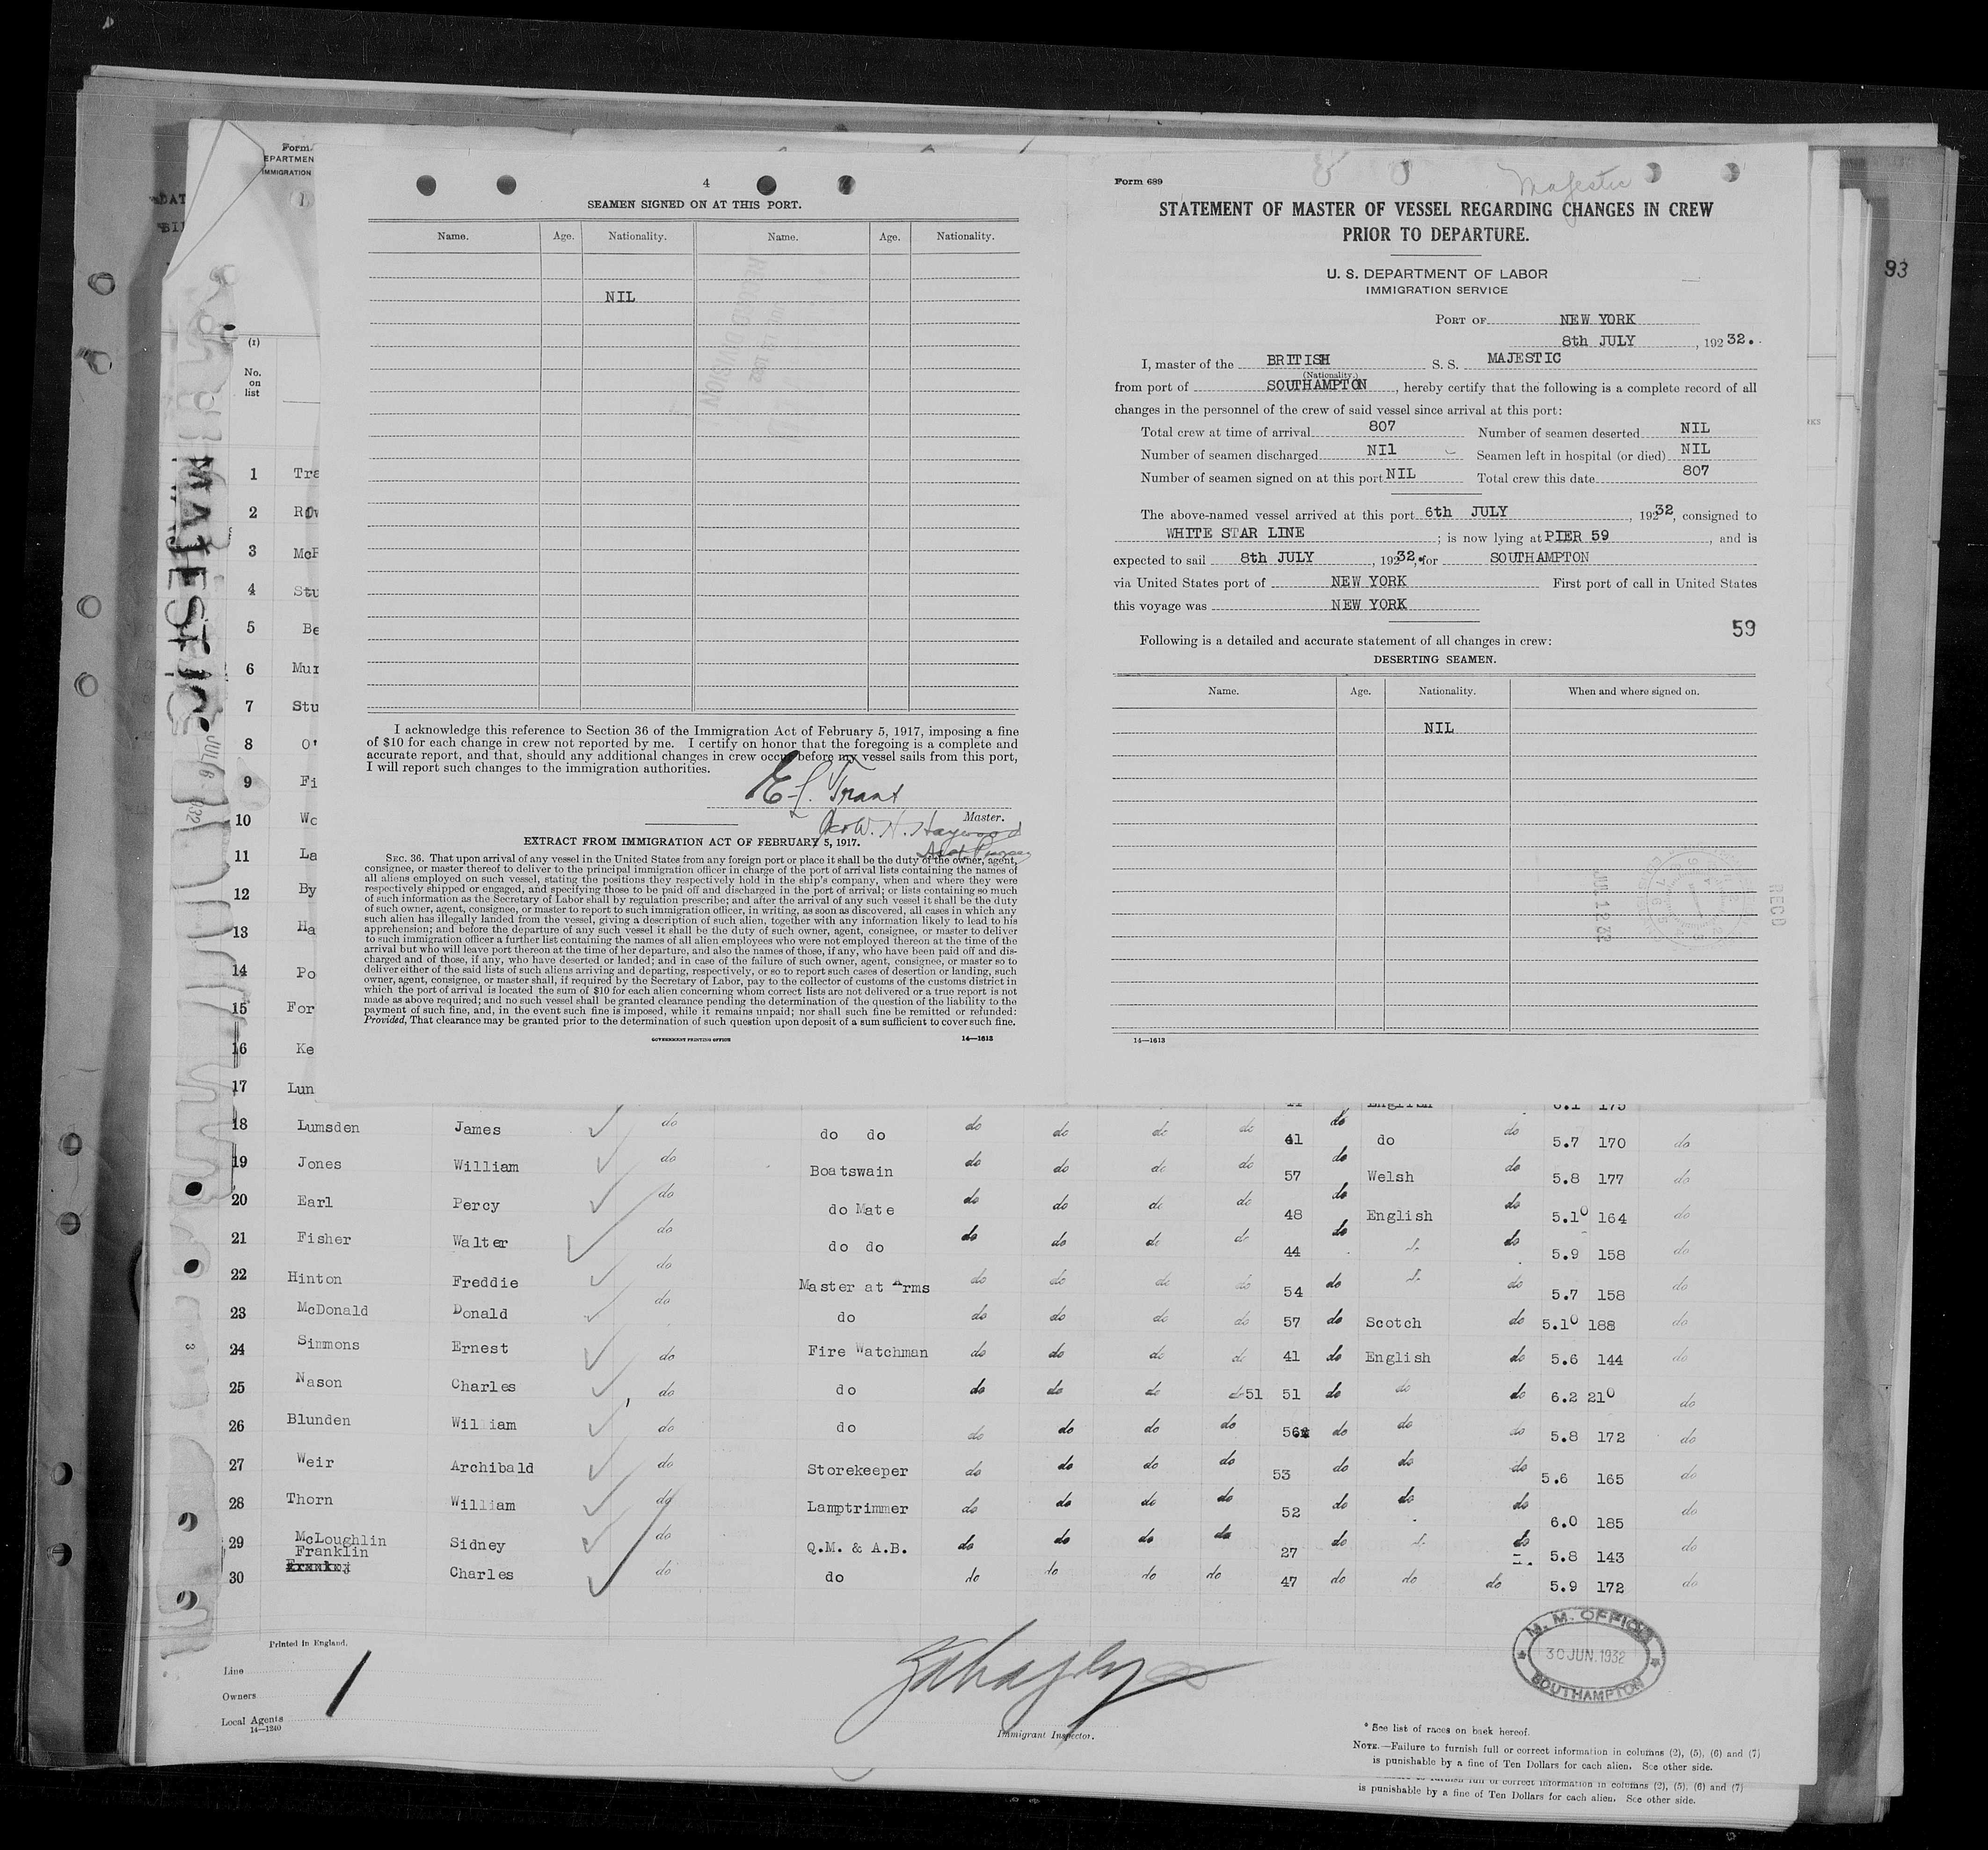 Form
EPARTMEN
IMMIGRATION
93
(1)
No.
on
list
MAJESTIC
JUL 6 1932
1 Tra
2 Row
3 McF
4 Stu
5 Be
6 Mur
7 Stu
8 O'
9 Fi
10 Wo
11 La
12 By
13 Ha
14 Po
15 For
16 Ke
17 Lun
4
SEAMEN SIGNED ON AT THIS PORT.
Name. Age. Nationality. Name. Age. Nationality.
NIL
RECORD DIVISION
I acknowledge this reference to Section 36 of the Immigration Act of February 5, 1917, imposing a fine
of $10 for each change in crew not reported by me. I certify on honor that the foregoing is a complete and
accurate report, and that, should any additional changes in crew occur before my vessel sails from this port,
I will report such changes to the immigration authorities.
E. L. Trant
Master.
W. H. Haywood
Asst Purser
EXTRACT FROM IMMIGRATION ACT OF FEBRUARY 5, 1917.
SEC. 36. That upon arrival of any vessel in the United States from any foreign port or place it shall be the duty of the owner, agent,
consignee, or master thereof to deliver to the principal immigration officer in charge of the port of arrival lists containing the names of
all aliens employed on such vessel, stating the positions they respectively hold in the ship's company, when and where they were
respectively shipped or engaged, and specifying those to be paid off and discharged in the port of arrival; or lists containing so much
of such information as the Secretary of Labor shall by regulation prescribe; and after the arrival of any such vessel it shall be the duty
of such owner, agent, consignee, or master to report to such immigration officer, in writing, as soon as discovered, all cases in which any
such alien has illegally landed from the vessel, giving a description of such alien, together with any information likely to lead to his
apprehension; and before the departure of any such vessel it shall be the duty of such owner, agent, consignee, or master to deliver
to such immigration officer a further list containing the names of all alien employees who were not employed thereon at the time of the
arrival but who will leave port thereon at the time of her departure, and also the names of those, if any, who have been paid off and dis-
charged and of those, if any, who have deserted or landed; and in case of the failure of such owner, agent, consignee, or master so to
deliver either of the said lists of such aliens arriving and departing, respectively, or so to report such cases of desertion or landing, such
owner, agent, consignee, or master shall, if required by the Secretary of Labor, pay to the collector of customs of the customs district in
which the port of arrival is located the sum of $10 for each alien concerning whom correct lists are not delivered or a true report is not
made as above required; and no such vessel shall be granted clearance pending the determination of the question of the liability to the
payment of such fine, and, in the event such fine is imposed, while it remains unpaid; nor shall such fine be remitted or refunded:
Provided, That clearance may be granted prior to the determination of such question upon deposit of a sum sufficient to cover such fine.
GOVERNMENT PRINTING OFFICE 14—1613
Form 689
Majestic
STATEMENT OF MASTER OF VESSEL REGARDING CHANGES IN CREW
PRIOR TO DEPARTURE.
U. S. DEPARTMENT OF LABOR
IMMIGRATION SERVICE
PORT OF NEW YORK
8th JULY , 192 32.
I, master of the BRITISH S. S. MAJESTIC
(Nationality.)
from port of SOUTHAMPTON , hereby certify that the following is a complete record of all
changes in the personnel of the crew of said vessel since arrival at this port:
Total crew at time of arrival 807 Number of seamen deserted NIL
Number of seamen discharged NIl Seamen left in hospital (or died) NIL
Number of seamen signed on at this port NIL Total crew this date 807
The above-named vessel arrived at this port 6th JULY , 192 32, consigned to
WHITE STAR LINE ; is now lying at PIER 59 , and is
expected to sail 8th JULY , 192 32, for SOUTHAMPTON
via United States port of NEW YORK First port of call in United States
this voyage was NEW YORK
59
Following is a detailed and accurate statement of all changes in crew:
DESERTING SEAMEN.
Name. Age. Nationality. When and where signed on.
NIL
JUL 12 32
RECD
14—1613
English 6.1 175
18 Lumsden James do do do do do do do 41 do do do 5.7 170 do
19 Jones William do Boatswain do do do do 57 do Welsh do 5.8 177 do
20 Earl Percy do do Mate do do do do 48 do English do 5.10 164 do
21 Fisher Walter do do do do do do do 44 do do do 5.9 158 do
22 Hinton Freddie do Master at Arms do do do do 54 do do do 5.7 158 do
23 McDonald Donald do do do do do do 57 do Scotch do 5.10 188 do
24 Simmons Ernest do Fire Watchman do do do do 41 do English do 5.6 144 do
25 Nason Charles do do do do do do 51 51 do do do 6.2 210 do
26 Blunden William do do do do do do 56 do do do 5.8 172 do
27 Weir Archibald do Storekeeper do do do do 53 do do do 5.6 165 do
28 Thorn William do Lamptrimmer do do do do 52 do do do 6.0 185 do
29 McLoughlin Sidney do Q.M. & A.B. do do do do 27 do do do 5.8 143 do
Franklin
30 Charles do do do do do do 47 do do do 5.9 172 do
Printed in England.
Line
Owners
Local Agents
14—1240
1
Immigrant Inspector.
M. M. OFFICE
30 JUN. 1932
SOUTHAMPTON
* See list of races on back hereof.
NOTE.—Failure to furnish full or correct information in columns (2), (5), (6) and (7)
is punishable by a fine of Ten Dollars for each alien. See other side.
to furnish full or correct information in columns (2), (5), (6) and (7)
is punishable by a fine of Ten Dollars for each alien. See other side.